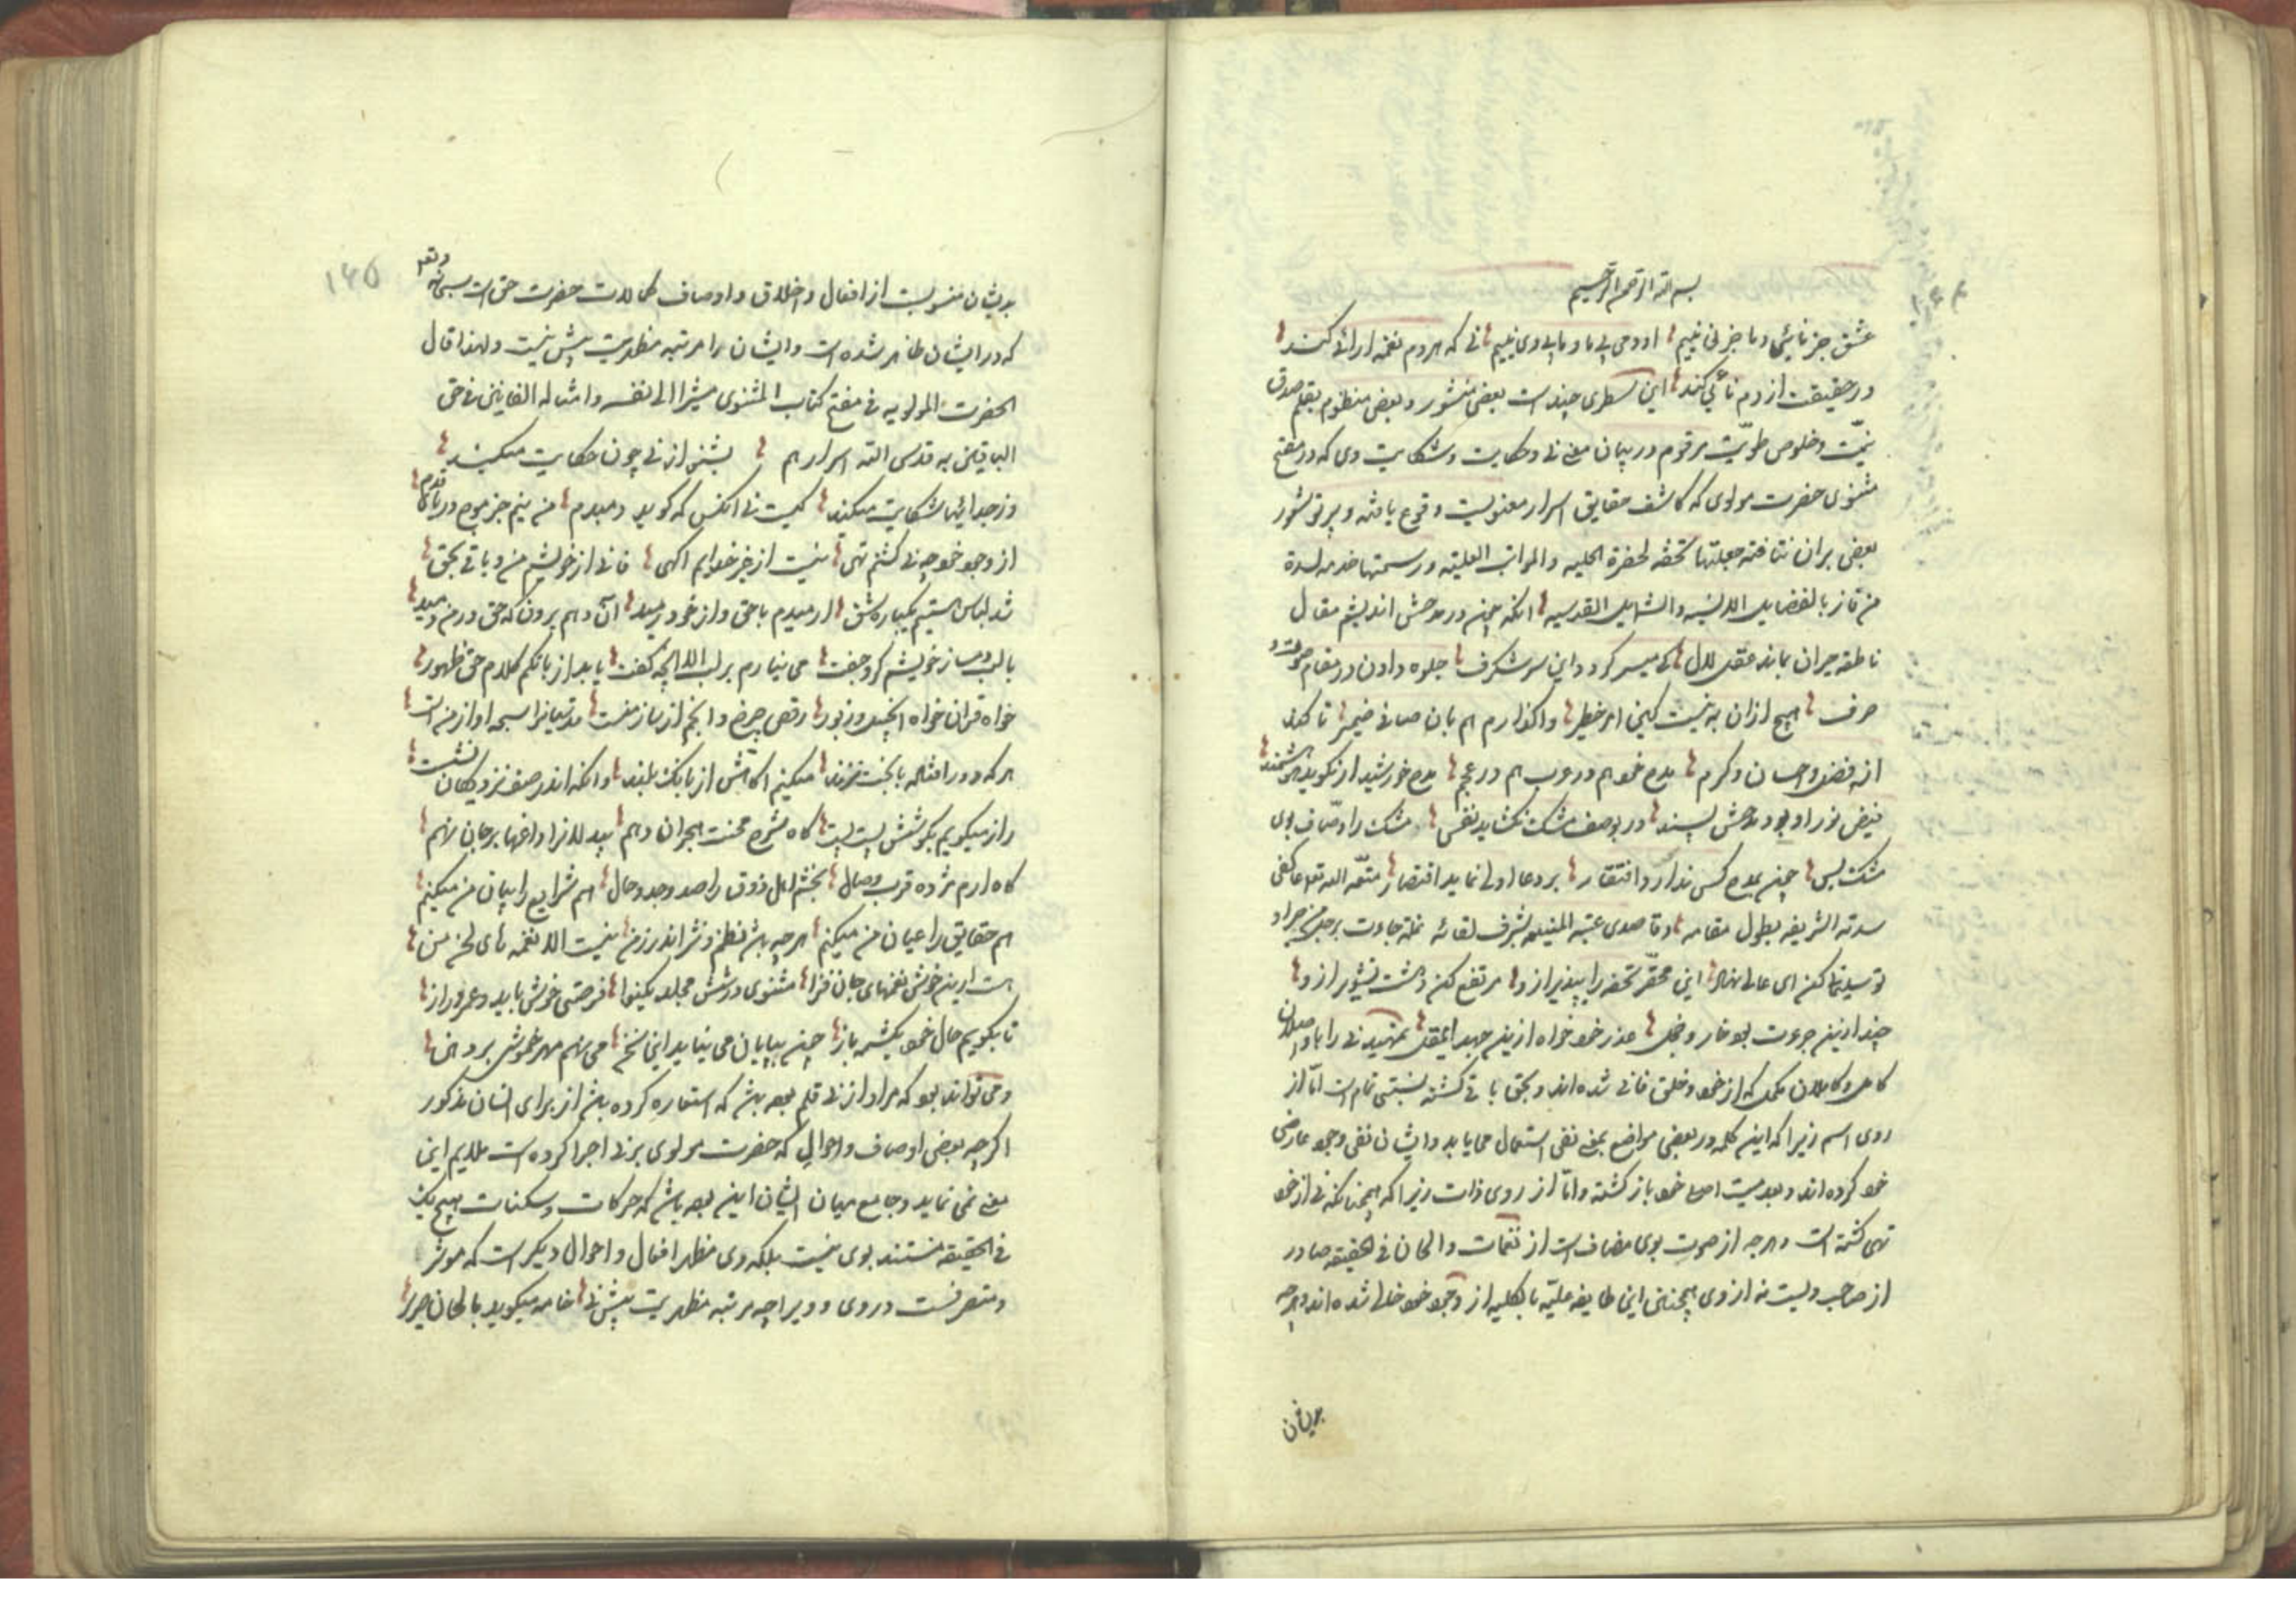 بسم الله الرحمن الرحيم
عشق جز نائی و ما جز نی نییم او دمی بی ما و ما بی وی نییم نی که هر دم نغمه آرائی کند
در حقیقت از دم نائی کند این سطری چندست بعضی منثور و بعضی منظوم بقلم صدق
نیّت و خلوص طویّت مرقوم در بیان معنی نی و حکایت و شکایت وی که در مفتح
مثنوی حضرت مولوی که کاشف حقایق اسرار معنویست وقوع یافته و پرتو شعور
بعضی بران نتافته جعلتها تحفة لحضرة العلیه والمراتب العلیّه ورسمتها خدمة لسدة
من فاز بالفضایل الانسیه والشمایل القدسیه انکه چون در مدحش اندیشم مقال
ناطقه حیران بماند عقل لال کی میسر کردد این سر شکرف جلوه دادن در مقام صوت و
حرف هیچ ازان به نیست کین امر خطیر واکذارم هم بان صافی ضمیر تا کند
از فضل و احسان و کرم مدح خود هم در عرب هم در عجم مدح خورشید ار نکوید هوشمند
فیض نور او بود مدحش پسند در بوصف مشک نکشاید نفس مشک را وصّاف بوی
مشک بس چون بمدح کس ندارد افتقار بر دعا اولی نماید اقتصار متّعه الله تعالی عاکفی
سدته الشریفه بطول مقامه و قاصدی عتبته المنیعه بشرف لقائه نملة جاءت برجل من جراد
تو سلیمانی کن ای عالی نهاد این محقّر تحفه را بپذیر ازو مرتفع کن دهشت تشویر ازو
چند ازین جرءت بود خار و خجل عذر خود خواه ازین جهد المقل تمهید نی را با واصلان
کامل و کاملان مکمل که از خود و خلق فانی شده اند و بحق باقی کشته نسبتی تمام است امّا از
روی اسم زیرا که این کلمه در بعضی مواضع بمعنی نفی استعمال می یابد و ایشان نفی وجود عارضی
خود کرده اند و بعدمیت اصلی خود باز کشته و امّا از روی ذات زیرا که همچنانکه نی از خود
تهی کشته است و هرچه از صوت بوی مضاف است از نغمات و الحان فی الحقیقه صادر
از صاحب ویست نه از وی همچنانین این طایفه علیّه بالکلیه از وجود خود خالی شده اند و هرچه
بدیشان
بدیشان منسوبست از افعال و اخلاق و اوصاف کمالات حضرت حق است سبحانه وتعالی
که در ایشان ظاهر شده است و ایشان را مرتبه مظهریت بیش نیست و لهذا قال
الحضرت المولویه فی مفتح کتاب المثنوی مشیرا الی نفسه و امثاله الفانین فی حق
الباقین به قدس الله اسرارهم بشنو از نی چون حکایت میکند
وز جدائیها شکایت میکند کیست نی انکس که کوید دمبدم من نیم جز موج دریای قدم
از وجود خود چو نی کشتم تهی نیست از غیر خدایم اکهی فانی از خویشم من و باقی بحق
شد لباس هستیم یکباره شق آرمیدم با حق و از خود رمید آن دهم بیرون که حق در من دمید
با لب دمساز خویشم کرد جفت می نیارم بر لب الا انچه کفت یابد از بانکم کلام حق ظهور
خواه قران خواه انجیل و زبور رقص چرخ و انجم از ساز منست قدسیانرا سبحه آواز منست
هر که دور افتد با بخت نژند میکنم اکاهش از بانک بلند وانکه اندر صف نزدیکان نشست
راز میکویم بکوشش پست پست کاه شرح محنت هجران دهم بیدلانرا داغها بر جان نهم
کاه آرم مژده قرب وصال بخشم اهل ذوق را صد وجد و حال هم شرایع را بیان من میکنم
هم حقایق را عیان من میکنم هرچه باشد نظم و نثر اندر زمن نیست الا نغمه های لحن من
هست ازین خوش نغمهای جان فزا مثنوی در شش مجلد یکنوا فرصتی خوش باید و عمر دراز
تا بکویم حال خود یکشمه باز چون بپایان می نیاید این سخن می نهم مهر خموشی بر دهن
و می تواند بود که مراد از نی قلم بوده باشد که استعاره کرده باشد از برای انسان مذکور
اکرچه بعضی اوصاف و احوال که حضرت مولوی بر نی اجرا کرده است ملایم این
معنی نمی نماید و جامع میان ایشان این بوده باشد که حرکات و سکنات هیچ یک
فی الحقیقه مستند بوی نیست بلکه وی مظهر افعال و احوال دیکرست که موثر
و متصرفست در وی و ویرا چه مرتبه مظهریت بیش نی خامه میکوید بالحان صریر